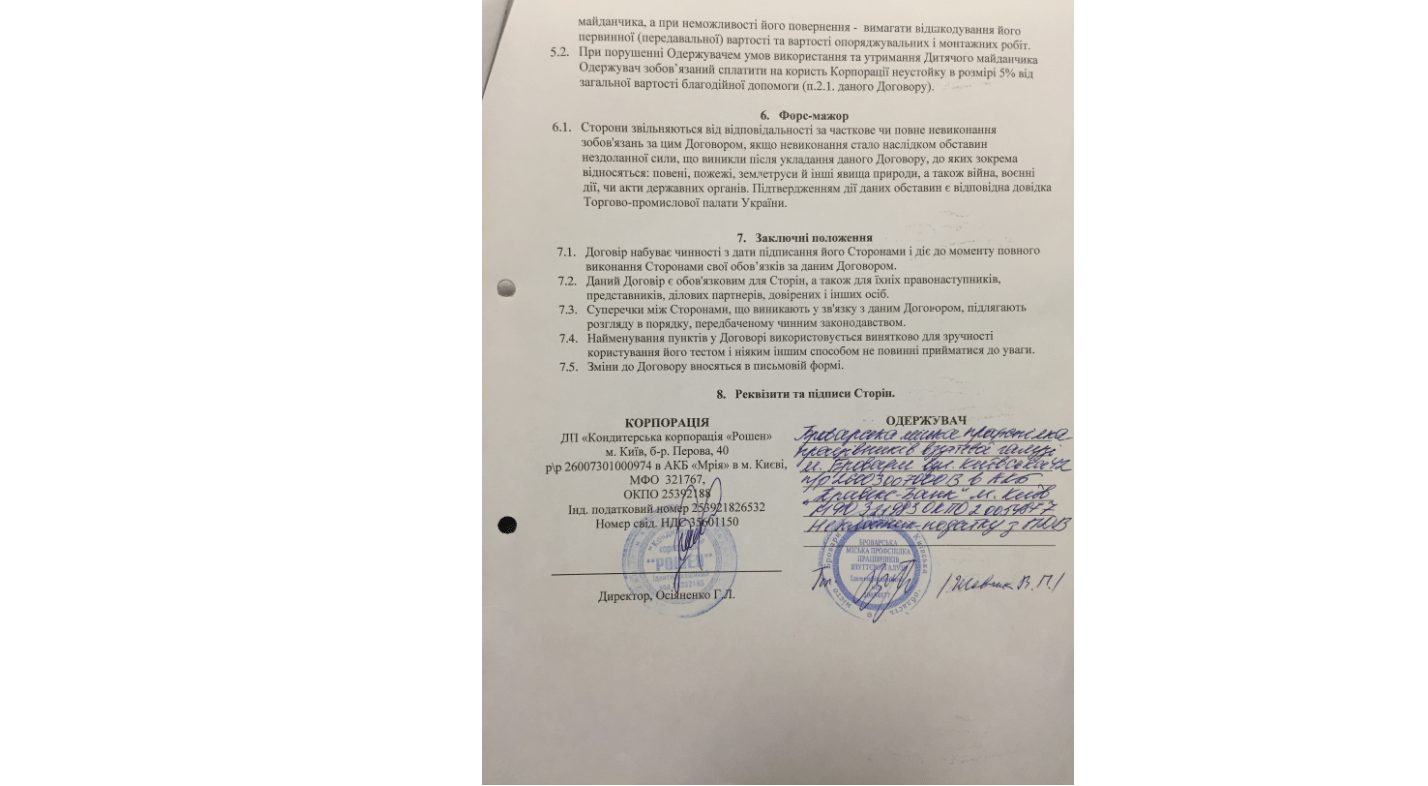 майданчика, а при неможливості його повернення - вимагати відшкодування його
первинної (передавальної) вартості та вартості опоряджувальних і монтажних робіт.
5.2. При порушенні Одержувачем умов використання та утримання Дитячого майданчика
Одержувач зобов'язаний сплатити на користь Корпорації неустойку в розмірі 5% від
загальної вартості благодійної допомоги (п.2.1. даного Договору).
6. Форс-мажор
6.1. Сторони звільняються від відповідальності за часткове чи повне невиконання
зобов'язань за цим Договором, якщо невиконання стало наслідком обставин
нездоланної сили, що виникли після укладання даного Договору, до яких зокрема
відносяться: повені, пожежі, землетруси й інші явища природи, а також війна, воєнні
дії, чи акти державних органів. Підтвердженням дії даних обставин є відповідна довідка
Торгово-промислової палати України.
7. Заключні положення
7.1. Договір набуває чинності з дати підписання його Сторонами і діє до моменту повного
виконання Сторонами свої обов'язків за даним Договором.
7.2. Даний Договір є обов'язковим для Сторін, а також для їхніх правонаступників,
представників, ділових партнерів, довірених і інших осіб.
7.3. Суперечки між Сторонами, що виникають у зв'язку з даним Договором, підлягають
розгляду в порядку, передбаченому чинним законодавством.
7.4. Найменування пунктів у Договорі використовується винятково для зручності
користування його тестом і ніяким іншим способом не повинні прийматися до уваги.
7.5. Зміни до Договору вносяться в письмовій формі.
8. Реквізити та підписи Сторін.
КОРПОРАЦІЯ
ДП «Кондитерська корпорація «Рошен»
м. Київ, б-р. Перова, 40
р\р 26007301000974 в АКБ «Мрія» в м. Києві,
МФО 321767,
ОКПО 25392188
Інд. податковий номер 253921826532
Номер свід. НДС 35601150
"РОШЕН"
Директор, Осіяненко Г.Л.
ОДЕРЖУВАЧ
Броварська міська профспілка
працівників взуттєвої галузі
м. Бровари вул. Київська
в АКБ
Банк" м. Київ
МФО 321983 ОКПО
Неплатник податку з ПДВ
БРОВАРСЬКА
МІСЬКА ПРОФСПІЛКА
ПРАЦІВНИКІВ
ВЗУТТЄВОЇ ГАЛУЗІ